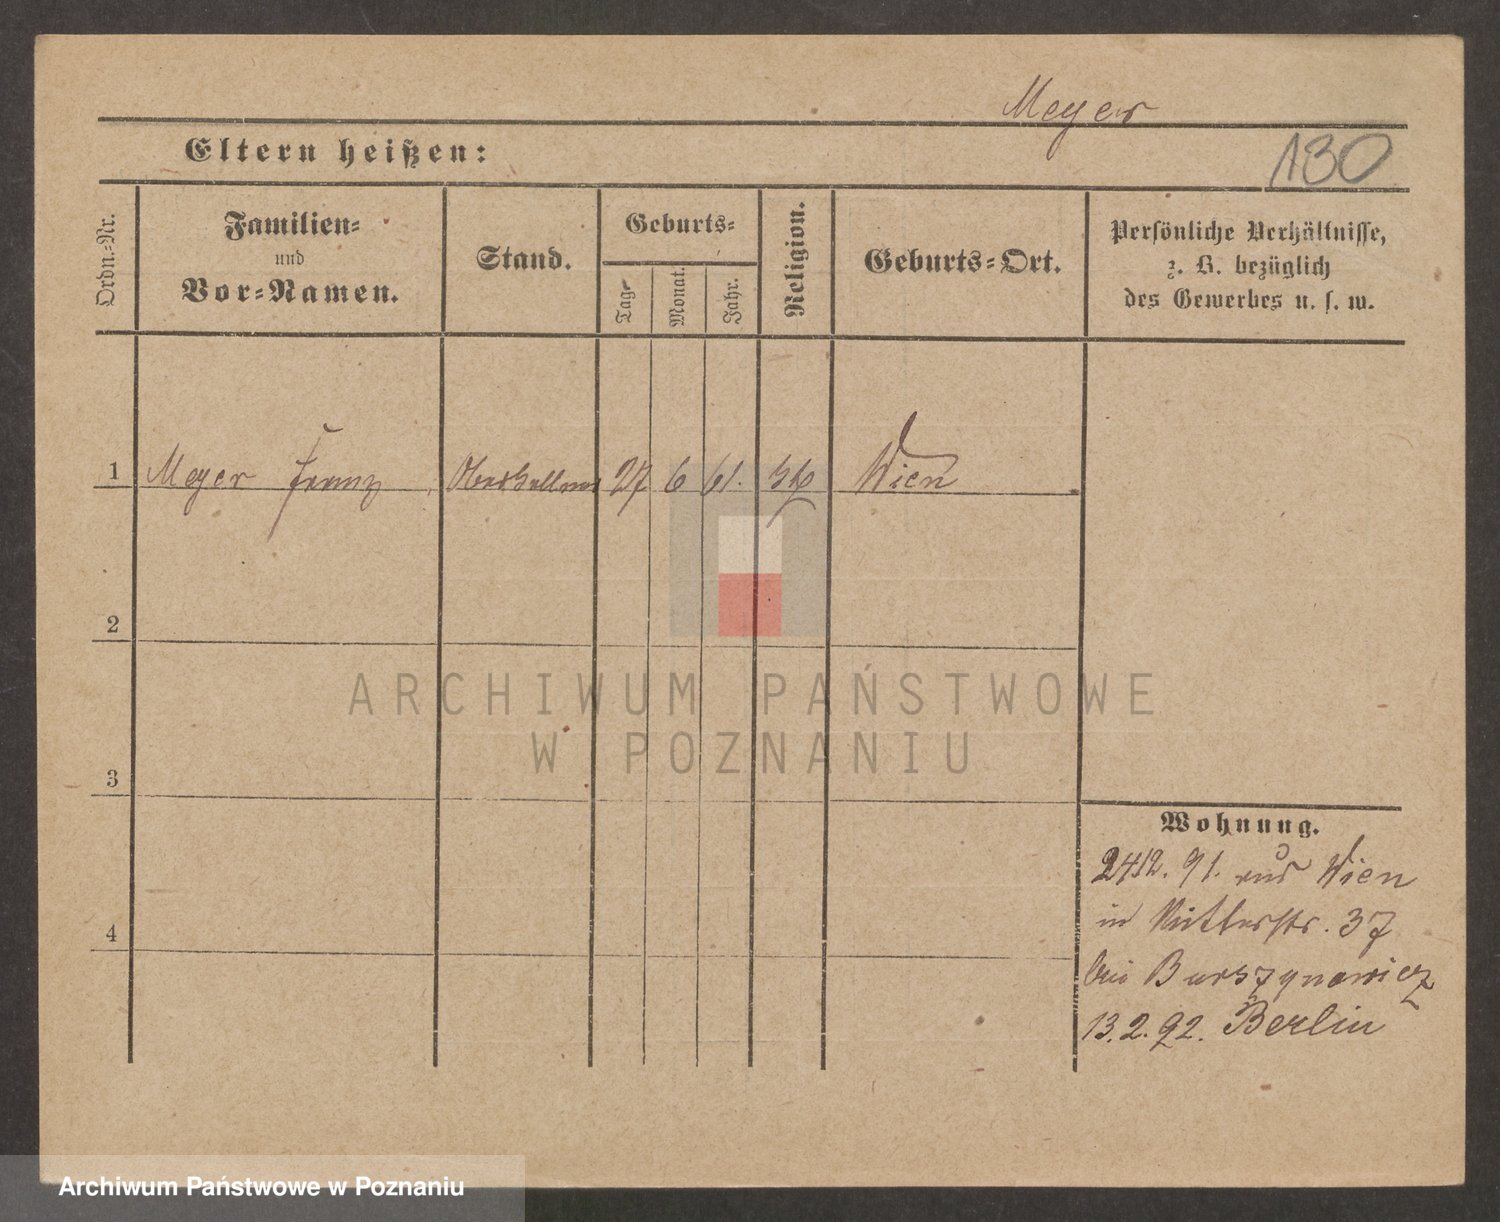 Meyer
130
Eltern heißen:
Ordn.-Nr.
Familien-
und
Vor-Namen.
Stand.
Geburts-
Tag.
Monat.
Jahr.
Religion.
Geburts-Ort.
Persönliche Verhältnisse,
z. B. bezüglich
des Gewerbes u. s. w.
1 Meyer Franz Oberkellner 27 6 61. Wien
2
3
4
Wohnung.
24 12. 91. aus Wien
in Ritterstr. 37
bei
13. 2. 92. Berlin
ARCHIWUM PAŃSTWOWE
W POZNANIU
Archiwum Państwowe w Poznaniu